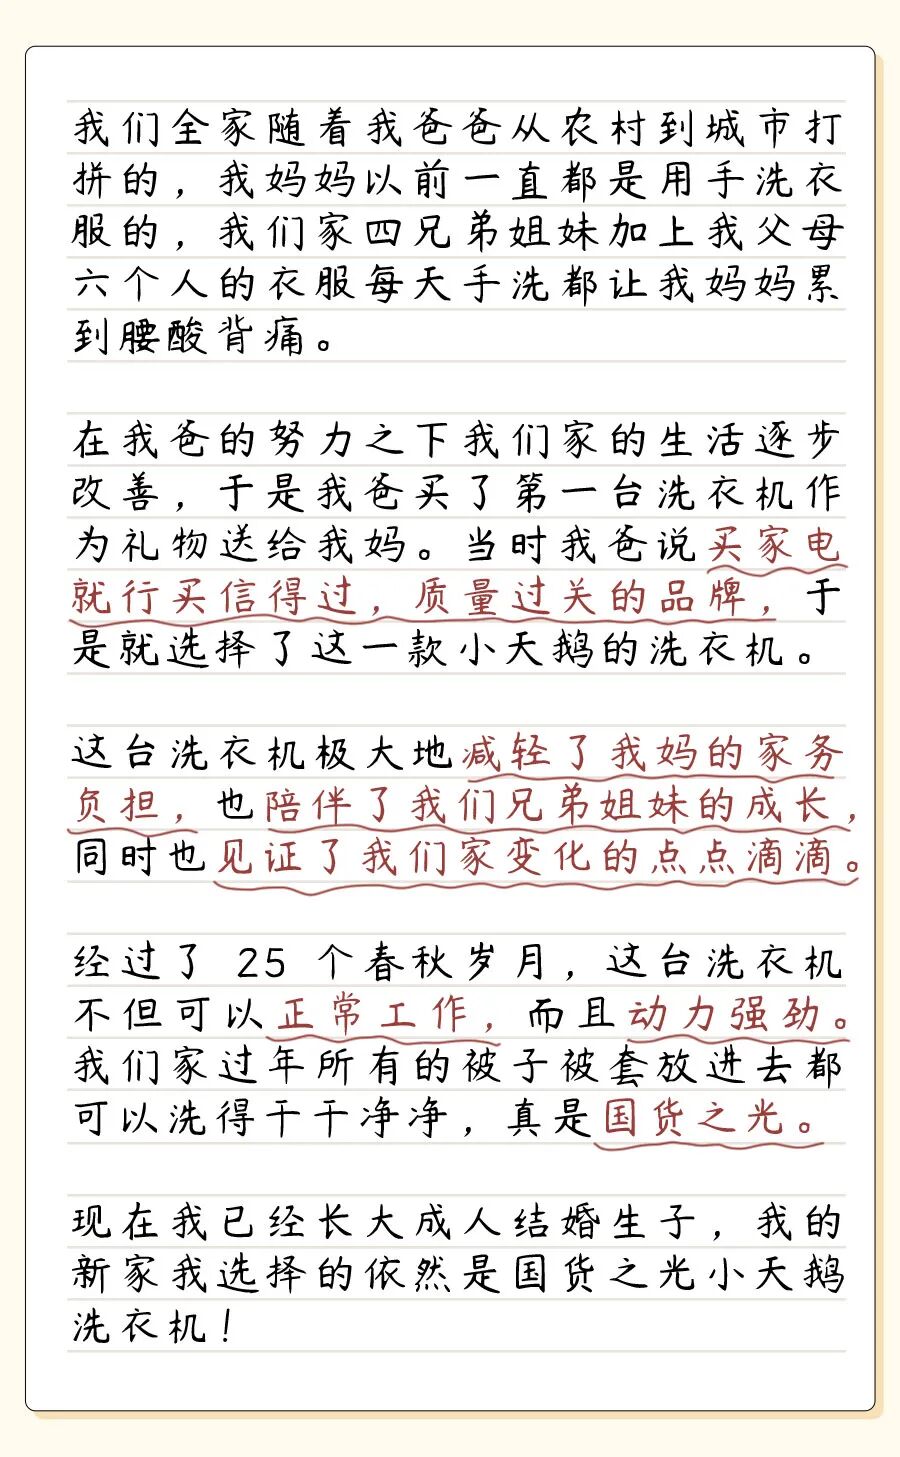 我们全家随着我爸爸从农村到城市打
拼的，我妈妈以前一直都是用手洗衣
服的，我们家四兄弟姐妹加上我父母
六个人的衣服每天手洗都让我妈妈累
到腰酸背痛。
在我爸的努力之下我们家的生活逐步
改善，于是我爸买了第一台洗衣机作
为礼物送给我妈。当时我爸说买家电
就行买信得过，质量过关的品牌，于
是就选择了这一款小天鹅的洗衣机。
这台洗衣机极大地减轻了我妈的家务
负担，也陪伴了我们兄弟姐妹的成长，
同时也见证了我们家变化的点点滴滴。
经过了 25 个春秋岁月，这台洗衣机
不但可以正常工作，而且动力强劲。
我们家过年所有的被子被套放进去都
可以洗得干干净净，真是国货之光。
现在我已经长大成人结婚生子，我的
新家我选择的依然是国货之光小天鹅
洗衣机！